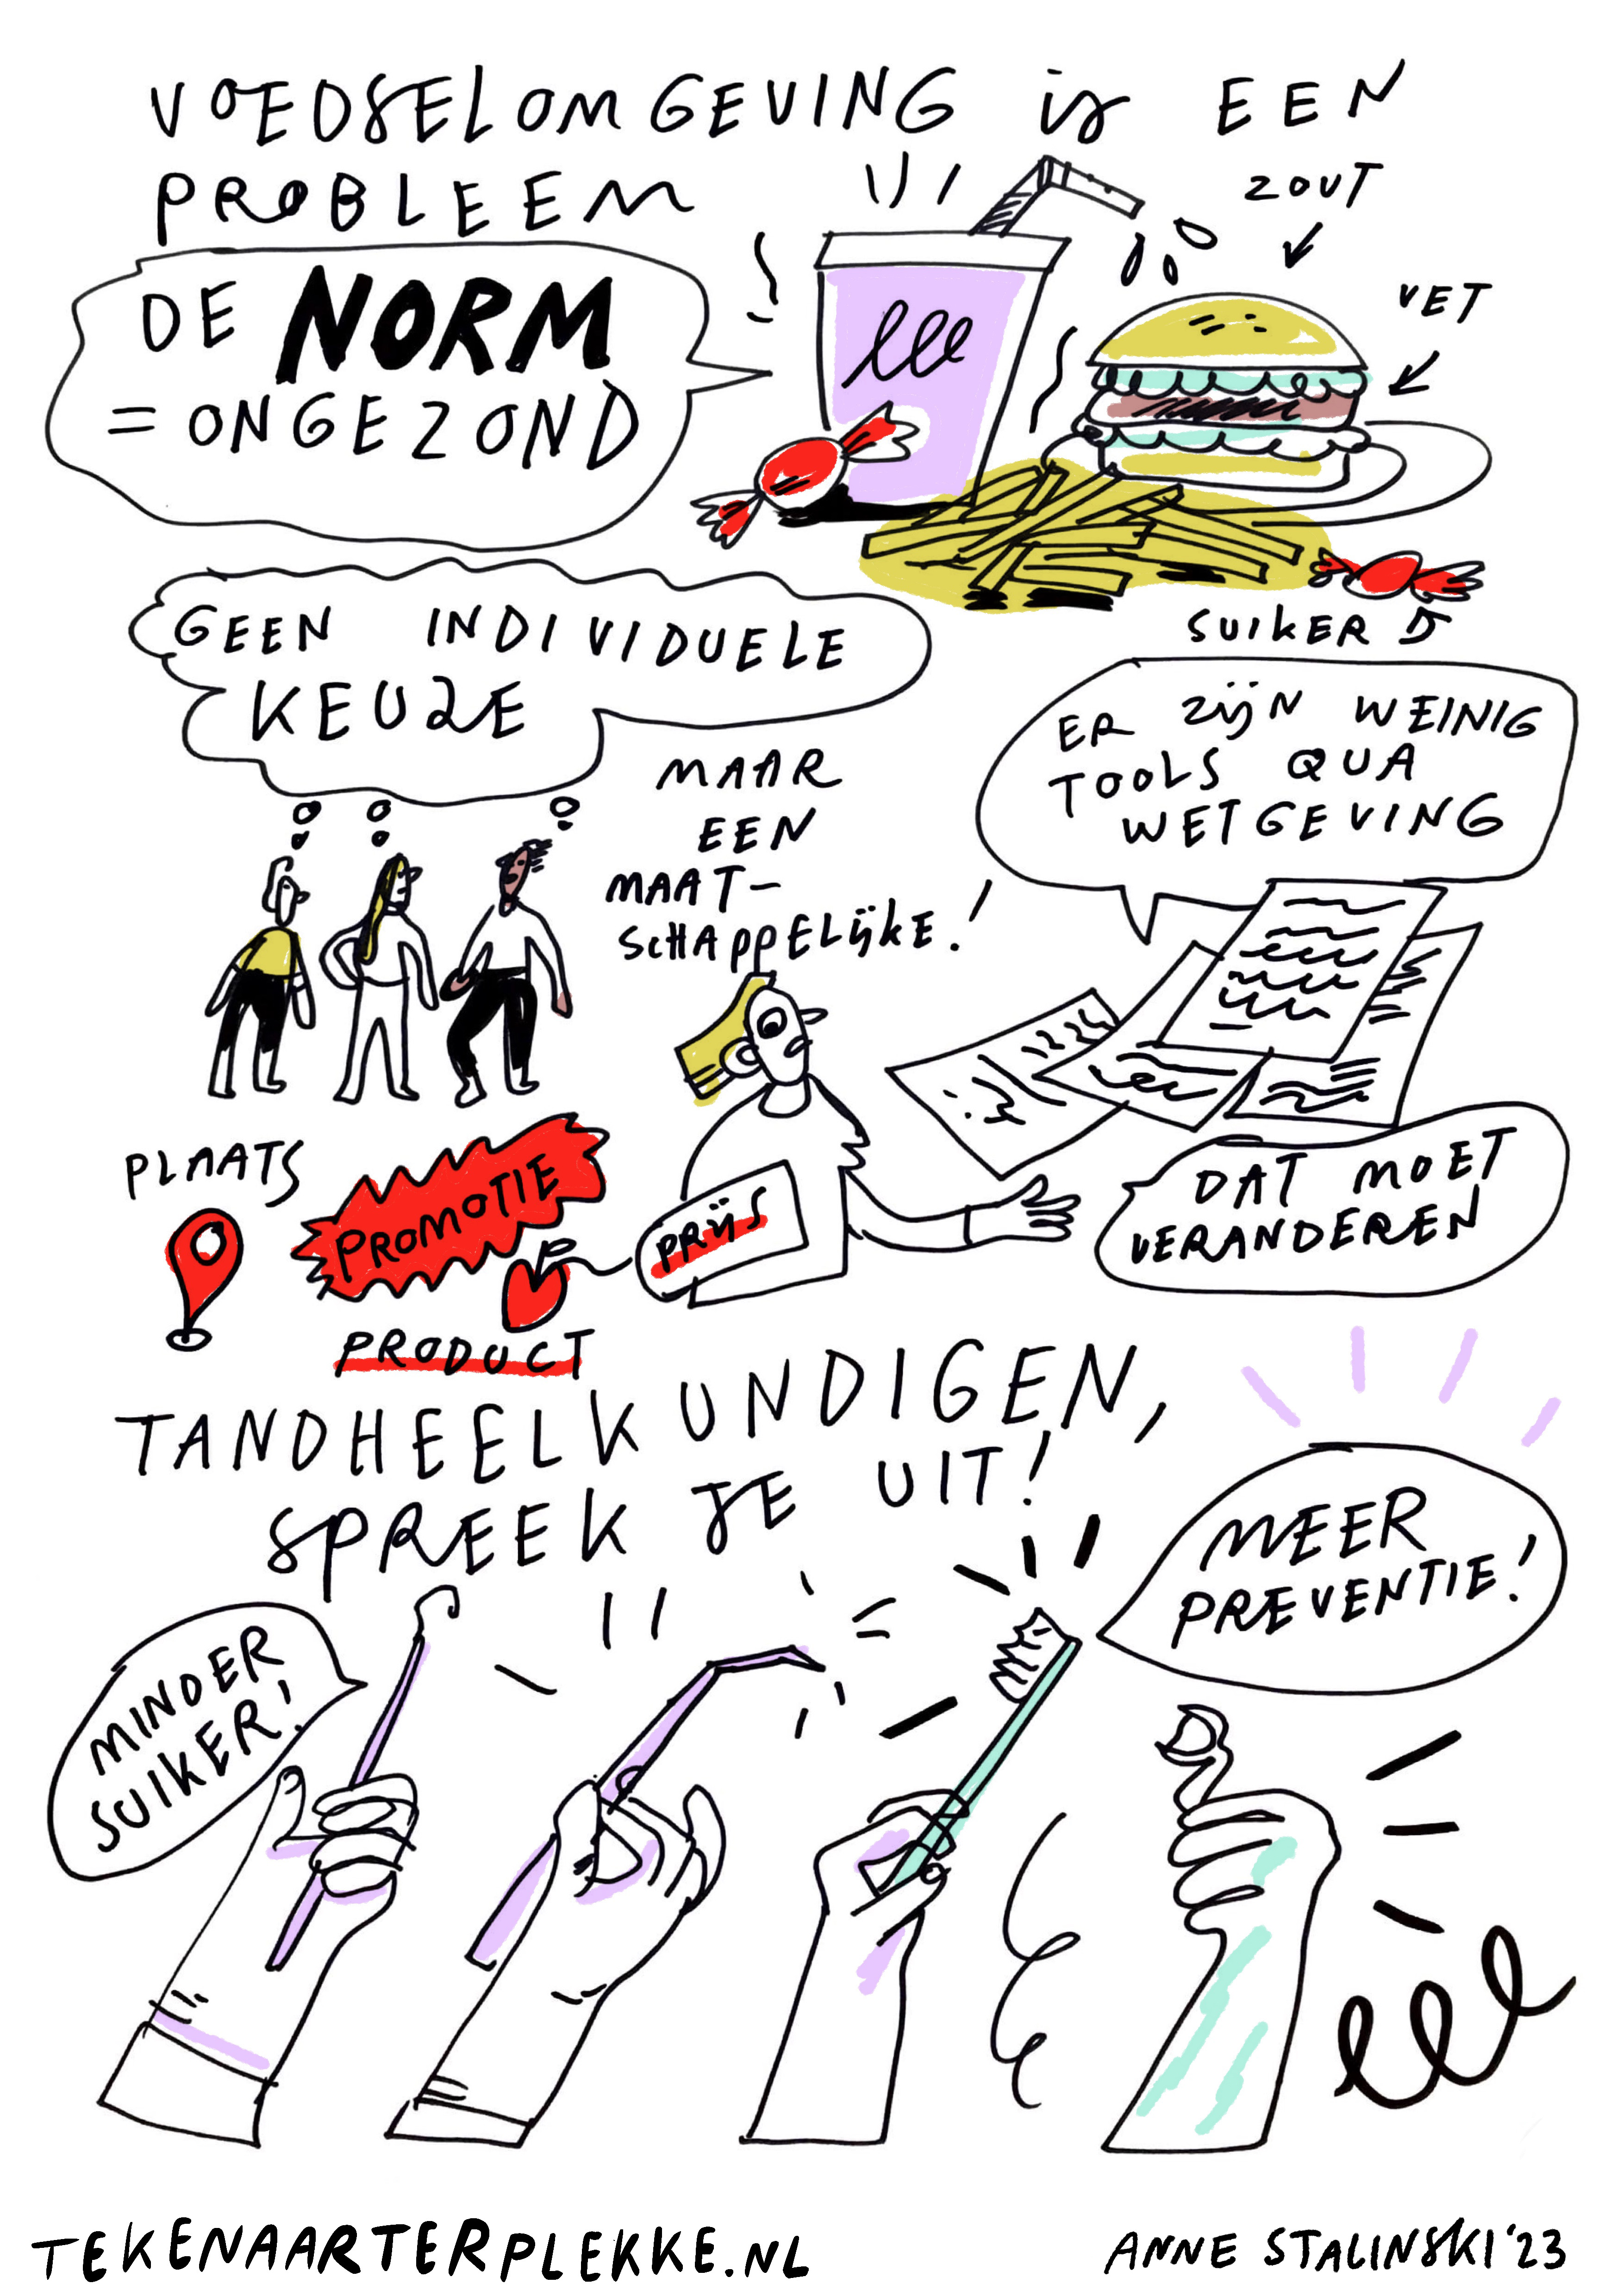 VOEDSELOMGEVING is EEN
PROBLEEM
ZOUT
VET
DE NORM
= ONGEZOND
SUIKER
GEEN INDIVIDUELE
KEUZE
MAAR
EEN
MAAT-
SCHAPPELijKE!
ER ZijN WEINIG
TOOLS QUA
WETGEVING
PLAATS
PROMOTIE
PRijS
PRODUCT
DAT MOET
VERANDEREN
TANDHEELKUNDIGEN,
SPREEK JE UIT!
MEER
PREVENTIE!
MINDER
SUIKER!
TEKENAARTERPLEKKE.NL
ANNE STALINSKI '23